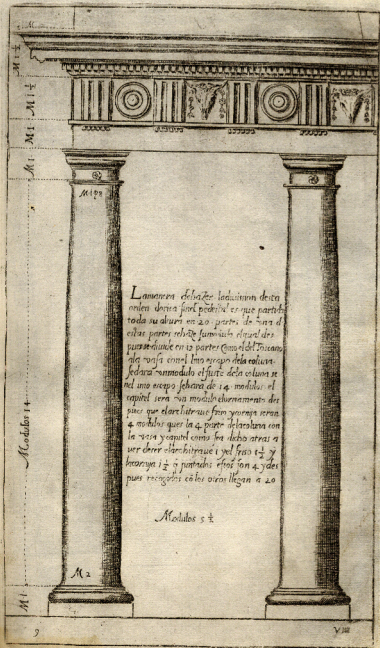 M
M 1 ½
M 1 ½
M 1
M 1
M 1 p 2
La manera de hazer la division desta
orden dorica sinel pedestal es que partida
toda su altura en 20 partes de una d
estas partes se haze su modulo el qual des
pues se divide en 12 partes como el del Toscano
ala vasa con el Imo escapo dela coluna
Sedara un modulo el fuste dela coluna si
nel imo escapo sehara de 14 modulos el
capitel sera un modulo el ornamento des
pues que el architrave friso y cornija seran
4 modulos que es la 4 parte dela coluna con
la vasa y capitel como sea dicho atras a
ver de ser el architrave 1 y el friso 1 ½ y
la cornija 1 ½ q̄ juntados estos son 4 y des
pues recogidos cō los otros llegan a 20
Modulos 14
Modulos 5 ½
M 2
M 1
9
VIIII